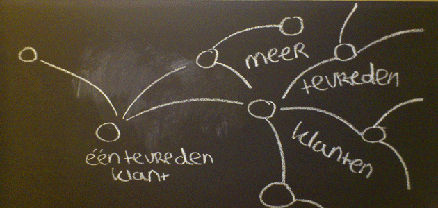 één tevreden
klant
meer
tevreden
klanten